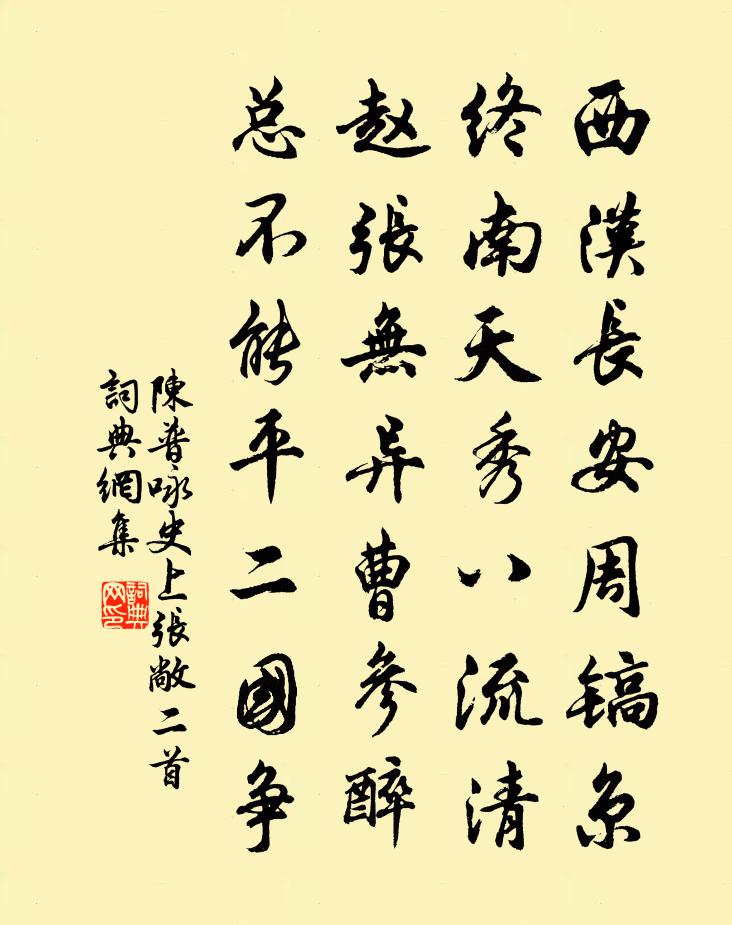 西漢長安周镐京
終南天秀八流清
赵張無异曹參醉
总不能平二國爭
陳普咏史上張敞二首
詞典網集
詞典网印